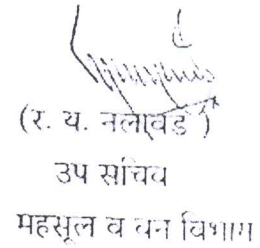 (र. य. नलावडे)
उप सचिव
महसूल व वन विभाग